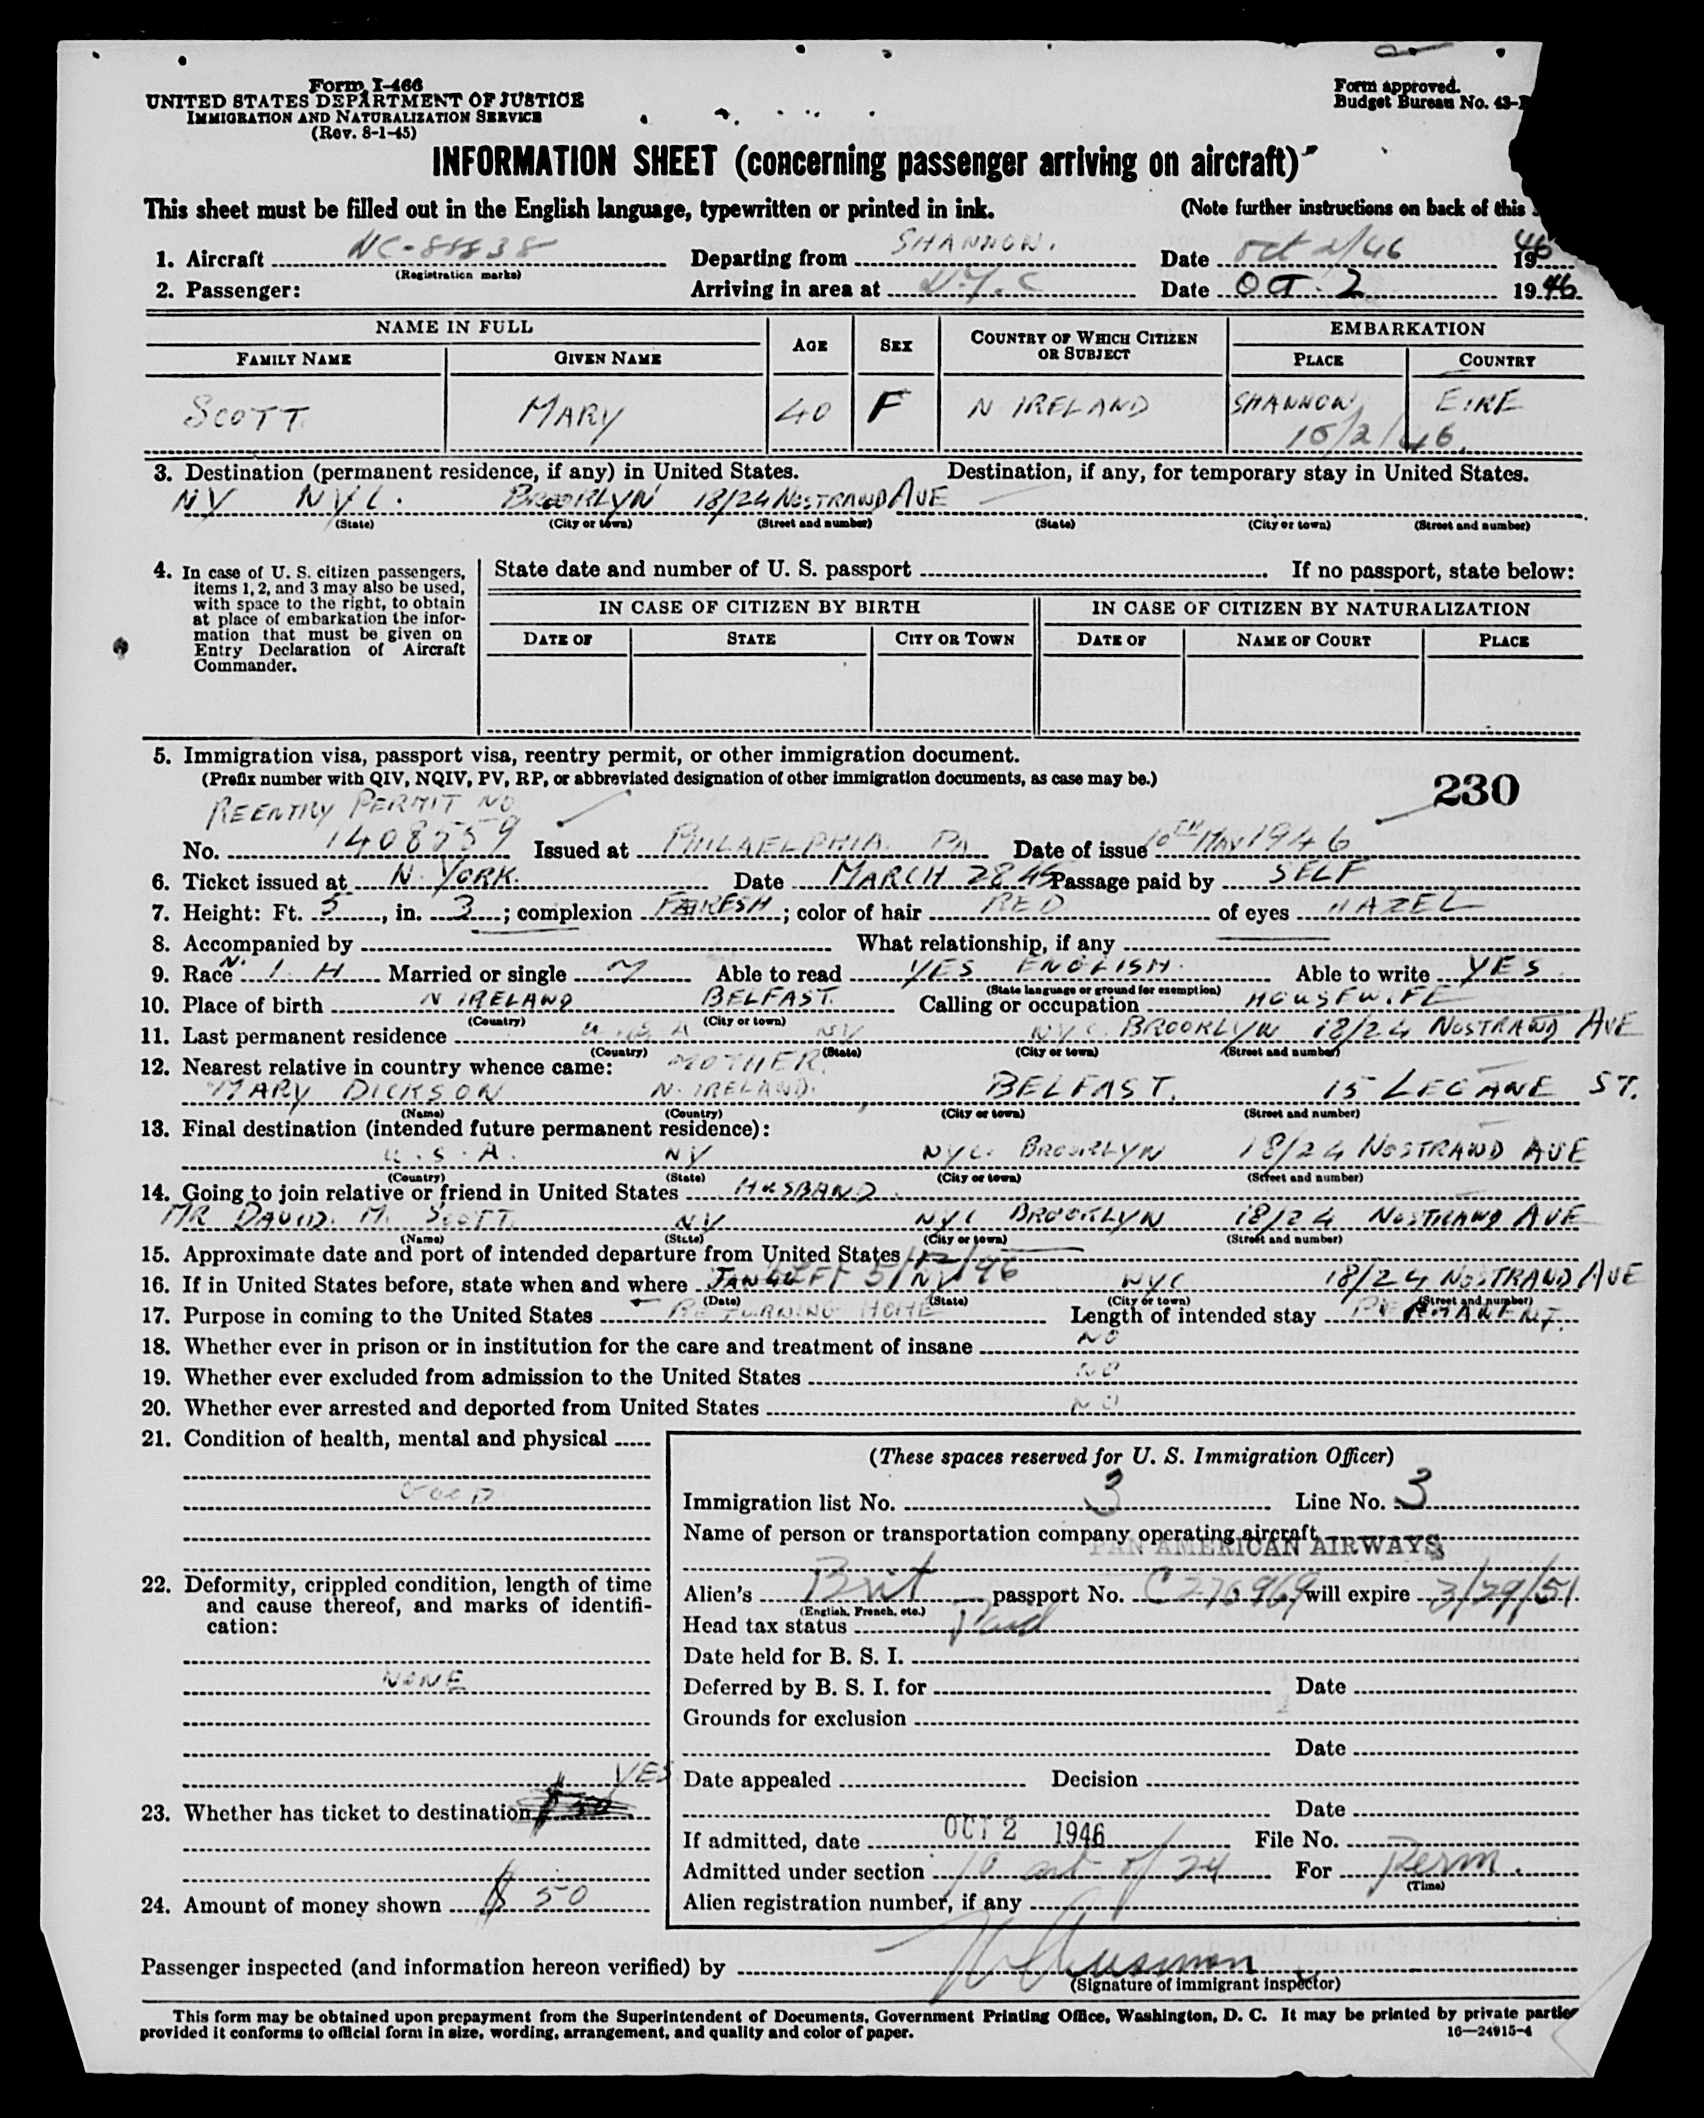 Form I-466
UNITED STATES DEPARTMENT OF JUSTICE
IMMIGRATION AND NATURALIZATION SERVICE
(Rev. 8-1-45)
Form approved.
Budget Bureau No. 43-
INFORMATION SHEET (concerning passenger arriving on aircraft)
This sheet must be filled out in the English language, typewritten or printed in ink. (Note further instructions on back of this
1. Aircraft NC-88838 Departing from SHANNON. Date Oct 2/46 1946
(Registration marks)
2. Passenger: Arriving in area at N.Y.C Date OCT. 2 1946
NAME IN FULL AGE SEX COUNTRY OF WHICH CITIZEN OR SUBJECT EMBARKATION
FAMILY NAME GIVEN NAME PLACE COUNTRY
SCOTT MARY 40 F N IRELAND SHANNON EIRE
10/2/46.
3. Destination (permanent residence, if any) in United States. Destination, if any, for temporary stay in United States.
NY NYC. BROOKLYN 18/24 NOSTRAND AVE
(State) (City or town) (Street and number) (State) (City or town) (Street and number)
4. In case of U. S. citizen passengers, items 1, 2, and 3 may also be used, with space to the right, to obtain at place of embarkation the information that must be given on Entry Declaration of Aircraft Commander.
State date and number of U. S. passport If no passport, state below:
IN CASE OF CITIZEN BY BIRTH IN CASE OF CITIZEN BY NATURALIZATION
DATE OF STATE CITY OR TOWN DATE OF NAME OF COURT PLACE
5. Immigration visa, passport visa, reentry permit, or other immigration document.
(Prefix number with QIV, NQIV, PV, RP, or abbreviated designation of other immigration documents, as case may be.)
230
REENTRY PERMIT NO
No. 1408559 Issued at PHILAELPHIA. PA Date of issue 10TH MAY 1946
6. Ticket issued at N. YORK. Date MARCH 28 45 Passage paid by SELF
7. Height: Ft. 5, in. 3; complexion FRESH; color of hair RED of eyes HAZEL
8. Accompanied by What relationship, if any
9. Race N. I H Married or single M Able to read YES ENGLISH. Able to write YES
(State language or ground for exemption)
10. Place of birth N IRELAND BELFAST. Calling or occupation HOUSEWIFE
(Country) (City or town)
11. Last permanent residence U.S.A NY NYC. BROOKLYN 18/24 NOSTRAND AVE
(Country) (State) (City or town) (Street and number)
12. Nearest relative in country whence came: MOTHER.
MARY DICKSON N. IRELAND. BELFAST. 15 LECANE ST.
(Name) (Country) (City or town) (Street and number)
13. Final destination (intended future permanent residence):
U.S.A. NY NYC. BROOKLYN 18/24 NOSTRAND AVE
(Country) (State) (City or town) (Street and number)
14. Going to join relative or friend in United States HUSBAND.
MR DAVID. M. SCOTT. NY NYC BROOKLYN 18/24 NOSTRAND AVE
(Name) (State) (City or town) (Street and number)
15. Approximate date and port of intended departure from United States
16. If in United States before, state when and where JAN LEFT 5/12/46 NY NYC 18/24 NOSTRAND AVE
(Date) (State) (City or town) (Street and number)
17. Purpose in coming to the United States RETURNING HOME Length of intended stay PERMANENT.
18. Whether ever in prison or in institution for the care and treatment of insane NO
19. Whether ever excluded from admission to the United States NO
20. Whether ever arrested and deported from United States NO
21. Condition of health, mental and physical
GOOD
22. Deformity, crippled condition, length of time and cause thereof, and marks of identification:
NONE
YES
23. Whether has ticket to destination
24. Amount of money shown $ 50
(These spaces reserved for U. S. Immigration Officer)
Immigration list No. 3 Line No. 3
Name of person or transportation company operating aircraft
PAN AMERICAN AIRWAYS
Alien's Brit passport No. C 276969 will expire 3/29/51
(English, French, etc.)
Head tax status Paid
Date held for B. S. I.
Deferred by B. S. I. for Date
Grounds for exclusion
Date
Date appealed Decision
Date
If admitted, date OCT 2 1946 File No.
Admitted under section 10 act of 24 For Perm.
(Time)
Alien registration number, if any
Passenger inspected (and information hereon verified) by
(Signature of immigrant inspector)
This form may be obtained upon prepayment from the Superintendent of Documents, Government Printing Office, Washington, D. C. It may be printed by private parties
provided it conforms to official form in size, wording, arrangement, and quality and color of paper. 16—24915-4